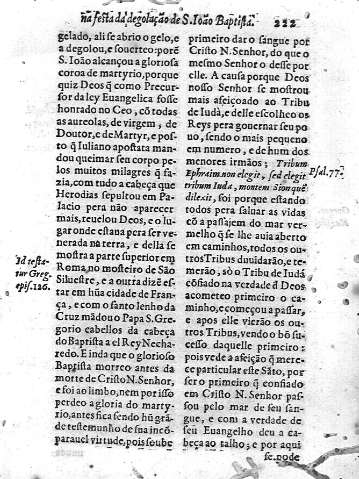 na festa da degolação de S. Ioão Baptista. 222
gelado, ali se abrio o gelo, e
a degolou, e soverteo: porẽ
S. Ioão alcançou a gloriosa
coroa de martyrio, porque
quiz Deos q̃ como Precur-
sor da ley Euangelica fosse
honrado no Ceo, cõ todas
as aureolas, de virgem, de
Doutor, e de Martyr, e pos-
to q̃ Iuliano apostata man-
dou queimar seu corpo pe-
los muitos milagres q̃ fa-
zia, com tudo a cabeça que
Herodias sepultou em Pa-
lacio pera não aparecer
mais, reuelou Deos, e o lu-
gar onde estaua pera ser ve-
nerada na terra, e della se
mostra a parte superior em
Roma, no mosteiro de São
Siluestre, e a outra dizẽ es-
tar em hũa cidade de Fran-
ça, e com o santo lenho da
Cruz mãdou o Papa S. Gre-
gorio cabellos da cabeça
do Baptista a el Rey Necha-
redo. E inda que o glorioso
Baptista morreo antes da
morte de Cristo N. Senhor,
e foi ao limbo, nem por isso
perdeo a gloria do marty-
rio, antes fica sendo hũ grã-
de testemunho de sua inco-
parauel virtude, pois soube
Id testa-
tur Greg.
epis. 126.
primeiro dar o sangue por
Cristo N. Senhor, do que o
mesmo Senhor o desse por
elle. A causa porque Deos
nosso Senhor se mostrou
mais afeiçoado ao Tribu
de Iudá, e delle escolheo os
Reys pera gouernar seu po
uo, sendo o mais pequeno
em numero, e de hum dos
menores irmãos; Tribum
Ephraim non elegit, sed elegit
tribum Iuda, montem Sion quẽ
dilexit, foi porque estando
todos pera saluar as vidas
cõ a passajem do mar ver-
melho q̃ se lhe auia aberto
em caminhos, todos os ou-
tros Tribus duuidarão, e te-
merão, só o Tribu de Iudá
cõfiado na verdade d Deos
acometeo primeiro o ca-
minho, e começou a passar,
e apos elle vierão os ou-
tros Tribus, vendo o bõ su-
cesso daquelle primeiro:
pois vede a afeição q̃ mere-
ce particular este Sãto, por
ser o primeiro q̃ confiado
em Cristo N. Senhor pas-
sou pelo mar de seu san-
gue, e com a verdade de
seu Euangelho deu a ca-
beça ao talho; e por aqui
Psal. 77.
se pode